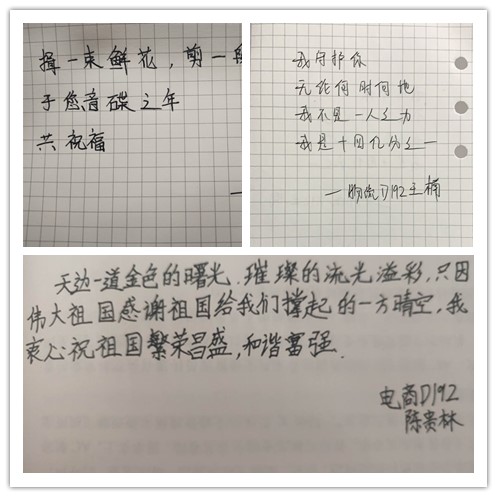 揖一束鲜花，剪一段
于您音碟之年
共祝福
我守护你
无论何时何地
我不是一人之力
我是十四亿分之一
一物流D192王楠
天边一道金色的曙光.璀璨的流光溢彩,只因
伟大祖国感谢祖国给我们撑起的一方晴空,我
衷心祝祖国繁荣昌盛,和谐富强.
电商D192
陈贵林